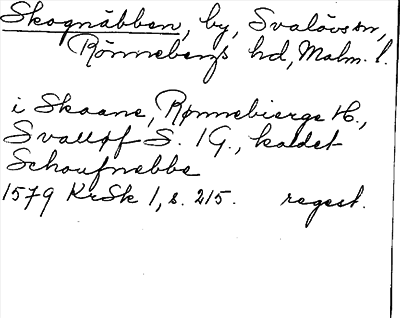 Skognäbben, by, Svalövs sn,
Rönnebergs hd, Malm. l.
i Skaane, Rønnebierge H.,
Svalløf S. 1 G., kaldet
Schoufnebbe
1579 KrSk 1, s. 215. regest.